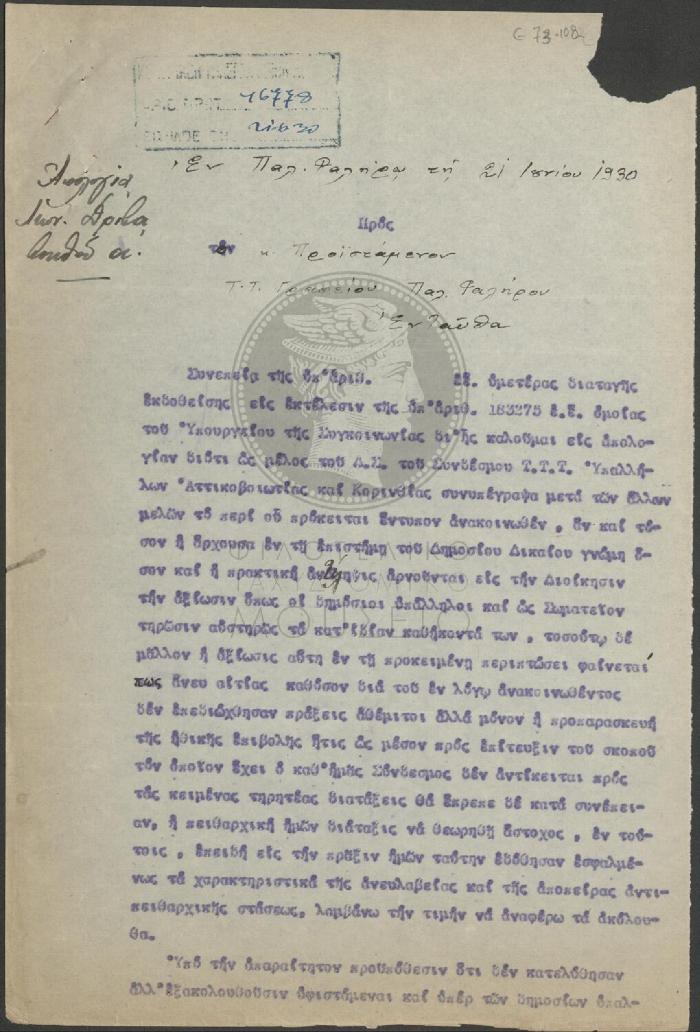 G 73-108
16778
21.6.30
Ἐν Παλ. Φαλήρῳ τῇ 21 Ἰουνίου 1930
Ἀπολογία
Πρὸς
τὸν κ. Προϊστάμενον
Τ.Τ. Γραφείου Παλ. Φαλήρου
Ἐνταῦθα
Συνεπείᾳ τῆς ὑπ'ἀριθ. ἐ.ἔ. ὑμετέρας διαταγῆς
ἐκδοθείσης εἰς ἐκτέλεσιν τῆς ὑπ'ἀριθ. 183275 ἐ.ἔ. ὁμοίας
τοῦ Ὑπουργείου τῆς Συγκοινωνίας δι'ἧς καλοῦμαι εἰς ἀπολο-
γίαν διότι ὡς μέλος τοῦ Δ.Σ. τοῦ Συνδέσμου Τ.Τ.Τ. Ὑπαλλή-
λων Ἀττικοβοιωτίας καὶ Κορινθίας συνυπέγραψα μετὰ τῶν ἄλλων
μελῶν τὸ περὶ οὗ πρόκειται ἔντυπον ἀνακοινωθέν, ἄν καὶ τό-
σον ἡ ἄρχουσα ἐν τῇ ἐπιστήμῃ τοῦ Δημοσίου Δικαίου γνώμη ὅ-
σον καὶ ἡ πρακτικὴ ἀντίληψις ἀρνοῦνται εἰς τὴν Διοίκησιν
τὴν ἀξίωσιν ὅπως οἱ δημόσιοι ὑπάλληλοι καὶ ὡς Σωματεῖον
τηρῶσιν αὐστηρῶς τὰ κατ'ἰδίαν καθήκοντά των, τοσούτῳ δὲ
μᾶλλον ἡ ἀξίωσις αὕτη ἐν τῇ προκειμένῃ περιπτώσει φαίνεταί
πως ἄνευ αἰτίας καθόσον διὰ τοῦ ἐν λόγῳ ἀνακοινωθέντος
δὲν ἐπεδιώχθησαν πράξεις ἀθέμιτοι ἀλλὰ μόνον ἡ προπαρασκευὴ
τῆς ἠθικῆς ἐπιβολῆς ἥτις ὡς μέσον πρὸς ἐπίτευξιν τοῦ σκοποῦ
τὸν ὁποῖον ἔχει ὁ καθ'ἡμᾶς Σύνδεσμος δὲν ἀντίκειται πρὸς
τὰς κειμένας τηρητέας διατάξεις θὰ ἔπρεπε δὲ κατὰ συνέπει-
αν, ἡ πειθαρχικὴ ἡμῶν διάταξις νὰ θεωρηθῇ ἄστοχος, ἐν τού-
τοις, ἐπειδὴ εἰς τὴν πρᾶξιν ἡμῶν ταύτην ἐδόθησαν ἐσφαλμέ-
νως τὰ χαρακτηριστικὰ τῆς ἀνευλαβείας καὶ τῆς ἀποπείρας ἀντι-
πειθαρχικῆς στάσεως, λαμβάνω τὴν τιμὴν νὰ ἀναφέρω τὰ ἀκόλου-
θα.
Ὑπὸ τὴν ἀπαραίτητον προϋπόθεσιν ὅτι δὲν κατελύθησαν
ἀλλ'ἐξακολουθοῦσιν ὑφιστάμεναι καὶ ὑπὲρ τῶν δημοσίων ὑπαλ-